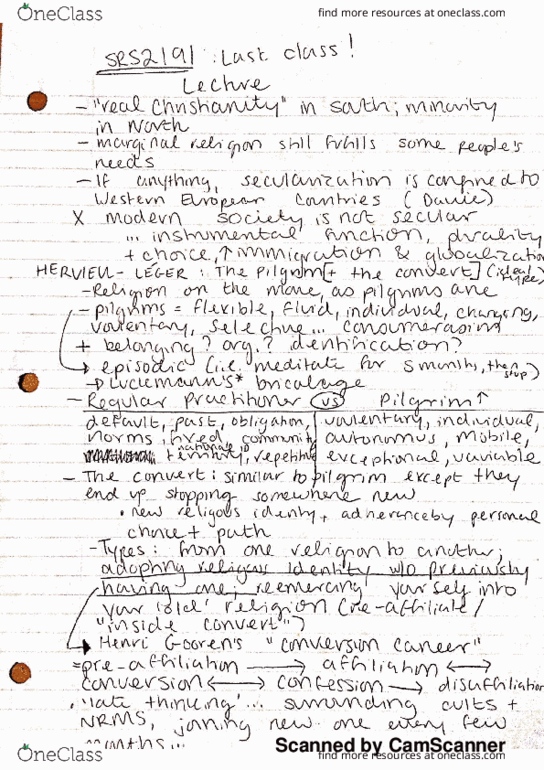 OneClass
find more resources at oneclass.com
SRS2191 : Last class!
Lecture
- "real Christianity" in south; minority
in North
- marginal religion still fulfills some people's
needs
- If anything, secularization is confined to
Western European countries (Davie)
X modern society is not secular
... instrumental function, plurality
+ choice, ↑ immigration & globalization
HERVIEU-LEGER : The Pilgrim [+ the convert] (ideal type)
- Religion on the move, as pilgrims are
- pilgrims = flexible, fluid, individual, changing,
voluntary, selective... consumerism
+ belonging? org.? identification?
→ episodic (i.e. meditate for 5 months, then stop)
→ Luckmann's* bricolage
- Regular Practitioner vs Pilgrim ↑
default, past, obligation, voluntary, individual,
norms, fixed, community, autonomus, mobile,
repetitive exceptional, variable
- The convert: similar to pilgrim except they
end up stopping somewhere new
• new religous identity + adherance by personal
choice + path
- Types: from one religion to another;
adopting religious identity w/o previously
having one; reemercing yourself into
your 'old' religion (re-affiliate/
"inside convert")
→ Henri Gooren's "conversion career"
= pre-affiliation → affiliation ↔
conversion ↔ confession → disaffiliation
• 'late thinking'... surrounding cults +
NRMS, joining new one every few
months...
Scanned by CamScanner
OneClass
find more resources at oneclass.com